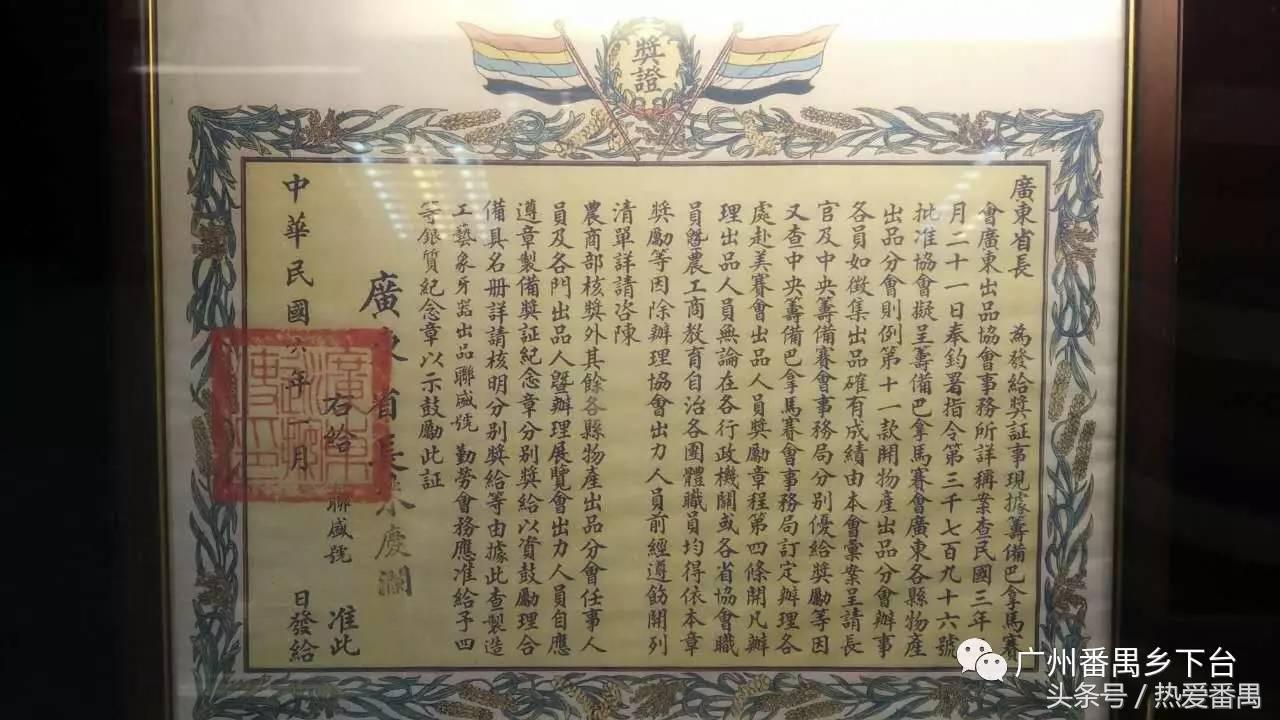 獎證
廣東省長　為發給獎証事現據籌備巴拿馬賽
會廣東出品協會事務所詳稱案查民國三年
月二十一日奉鈞署指令第三千七百九十六號
批准協會擬呈籌備巴拿馬賽會廣東各縣物產
出品分會則例第十一款開物產出品分會辦事
各員如徵集出品確有成績由本會彙案呈請長
官及中央籌備賽會事務局分別優給獎勵等因
又查中央籌備巴拿馬賽會事務局訂定辦理各
處赴美賽會出品人員獎勵章程第四條開凡辦
理出品人員無論在各行政機關或各省協會職
員暨農工商教育自治各團體職員均得依本章
獎勵等因除辦理協會出力人員前經遵飭開列
清單詳請咨陳
農商部核獎外其餘各縣物產出品分會任事人
員及各門出品人暨辦理展覽會出力人員自應
遵章製備獎証紀念章分別獎給以資鼓勵理合
備具名册詳請核明分別獎給等由據此查製造
工藝象牙器出品聯盛號　勤勞會務應准給予四
等銀質紀念章以示鼓勵此証
廣東省長朱慶瀾
右給　聯盛號　准此
中華民國六年一月　日發給
广州番禺乡下台
头条号 / 热爱番禺